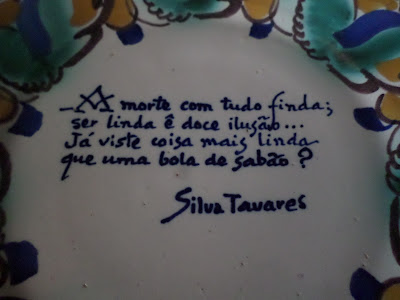 _A morte com tudo finda;
ser linda ê doce ilusão...
Já viste coisa mais linda
que uma bola de sabão?
Silva Tavares